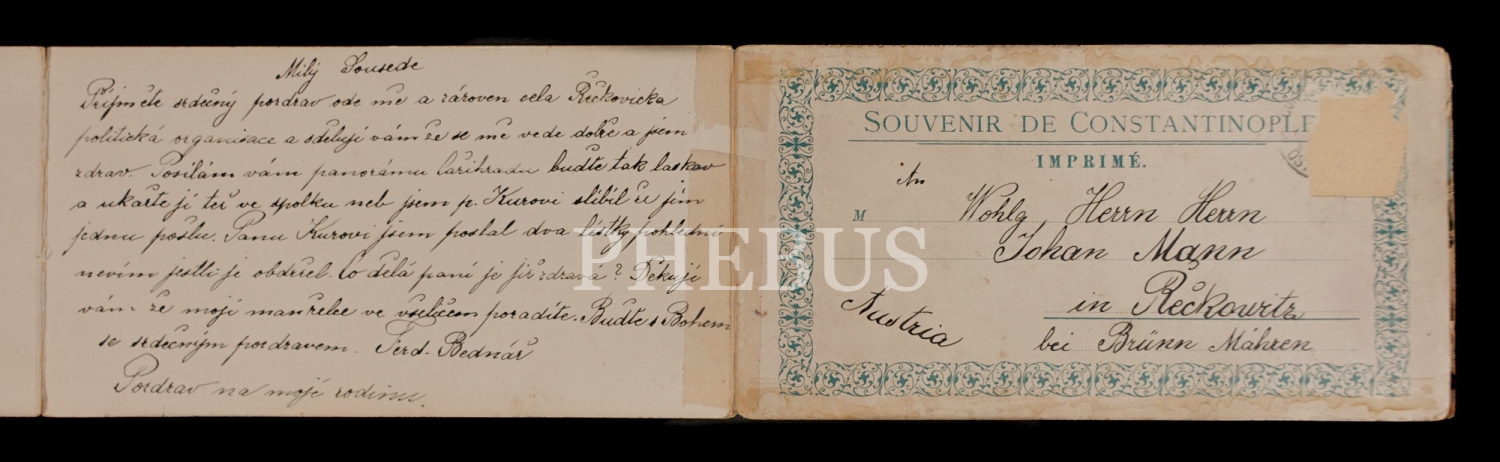 Milý Sousede
Přijměte srdečný pozdrav ode mě a zároven cela Řečkovicka
politická organisace a sděluji vám že se mě vede dobře a jsem
zdrav. Posílám vám panorámu Cařihradu buďte tak laskav
a ukažte ji též ve spolku neb jsem p. Kurovi slíbil že jim
jednu pošlu. Panu Kurovi jsem poslal dva lístky pohlední
nevím jestli je obdržel. Co dělá paní je již zdravá? Děkuji
vám že mojí manželce ve všeličem poradíte. Buďte s Bohem
se srdečným pozdravem. Ferd. Bednář
Pozdrav na mojé rodinu.
SOUVENIR DE CONSTANTINOPLE
IMPRIMÉ.
An
M Wohlg. Herrn Herrn
Johan Mann
in Řečkowitz
Austria
bei Brünn Mähren
PHEBUS